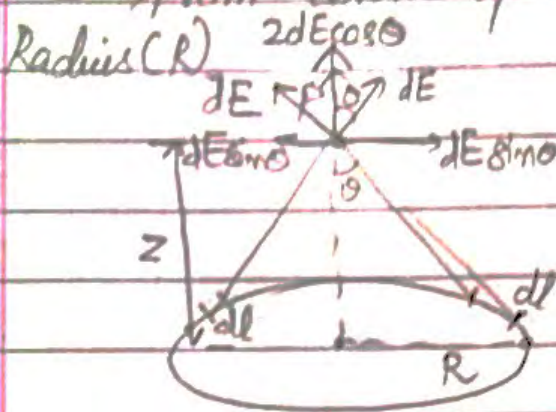 Radius (R)
2dEcosθ
dE
θ
dE
dEsinθ
dEsinθ
θ
Z
dl
dl
R